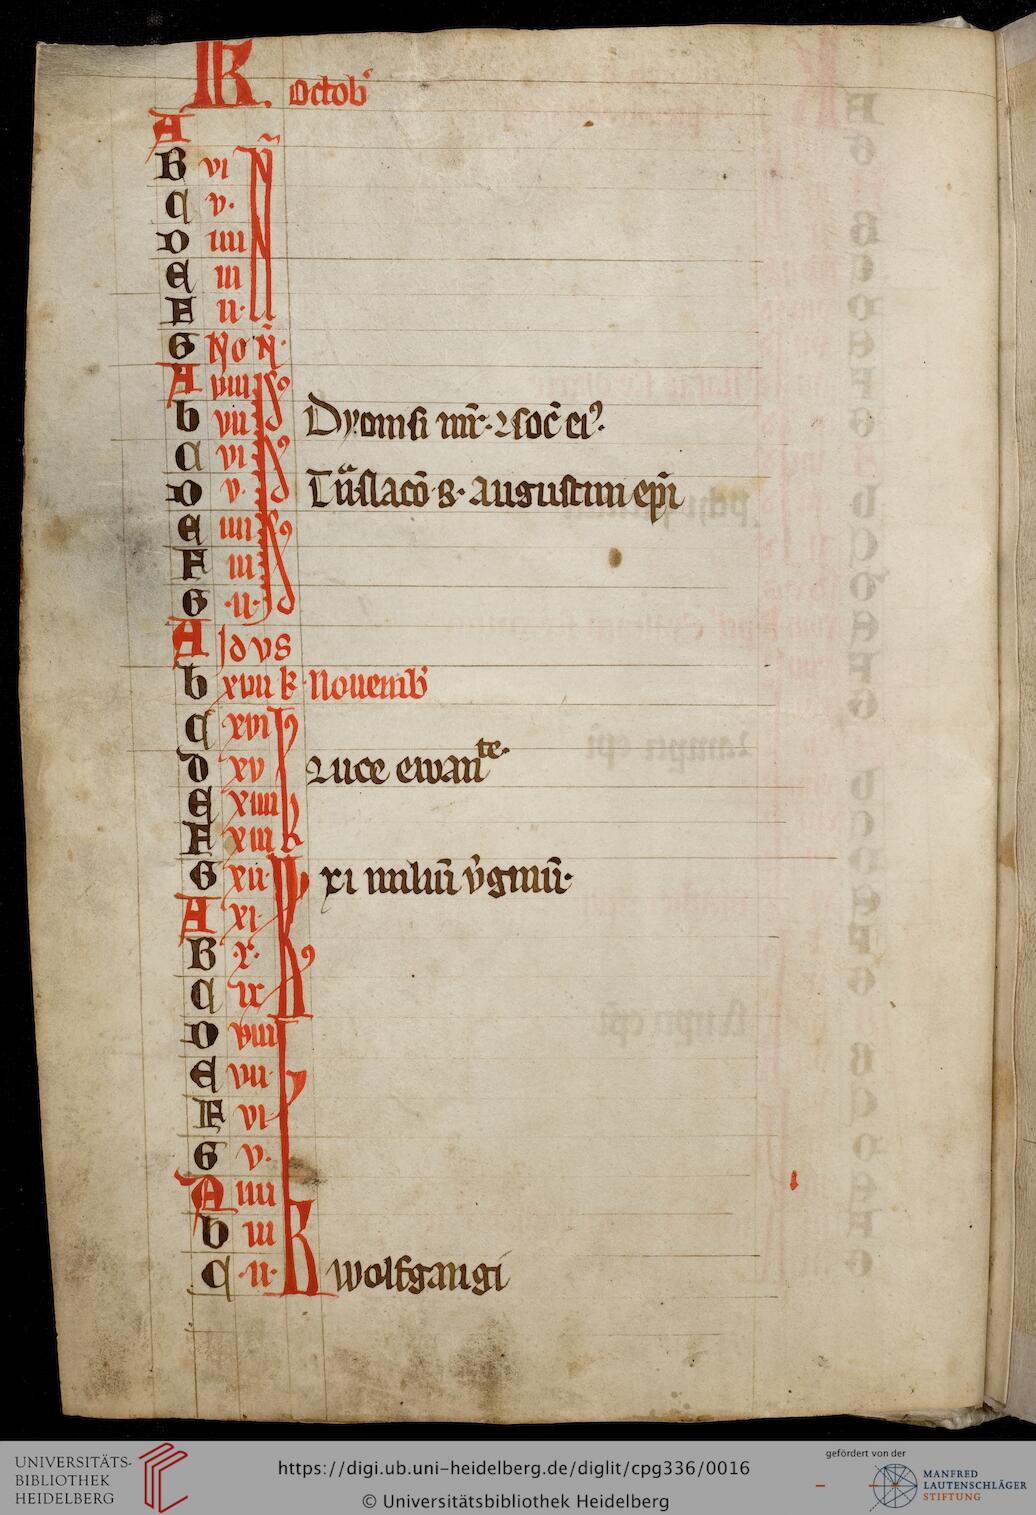 KL. Octob᾽
A
B vi N̄
C v·
D iiii
E iii
F ii·
G No N̄·
A viii Id᾽
b vii Dyonisi mr̄· ⁊ soc̄ ei᾽·
C vi
D v· Trāslacō s· augustini ep̄i
E iiii
F iii
G ·ii·
A Jdvs
b xvii k· Novemb᾽
C xvi kl
d xv Luce ewan te·
E xiiii
F xiii
G xii· xi miliū v᾽ginū·
A xi· kl
B ·x·
C ix
D viii kl
E vii·
F vi
G v·
A iiii
b iii
C ·ii· wolfgangi
UNIVERSITÄTS-
BIBLIOTHEK
HEIDELBERG
https://digi.ub.uni-heidelberg.de/diglit/cpg336/0016
© Universitätsbibliothek Heidelberg
gefördert von der
MANFRED
LAUTENSCHLÄGER
STIFTUNG